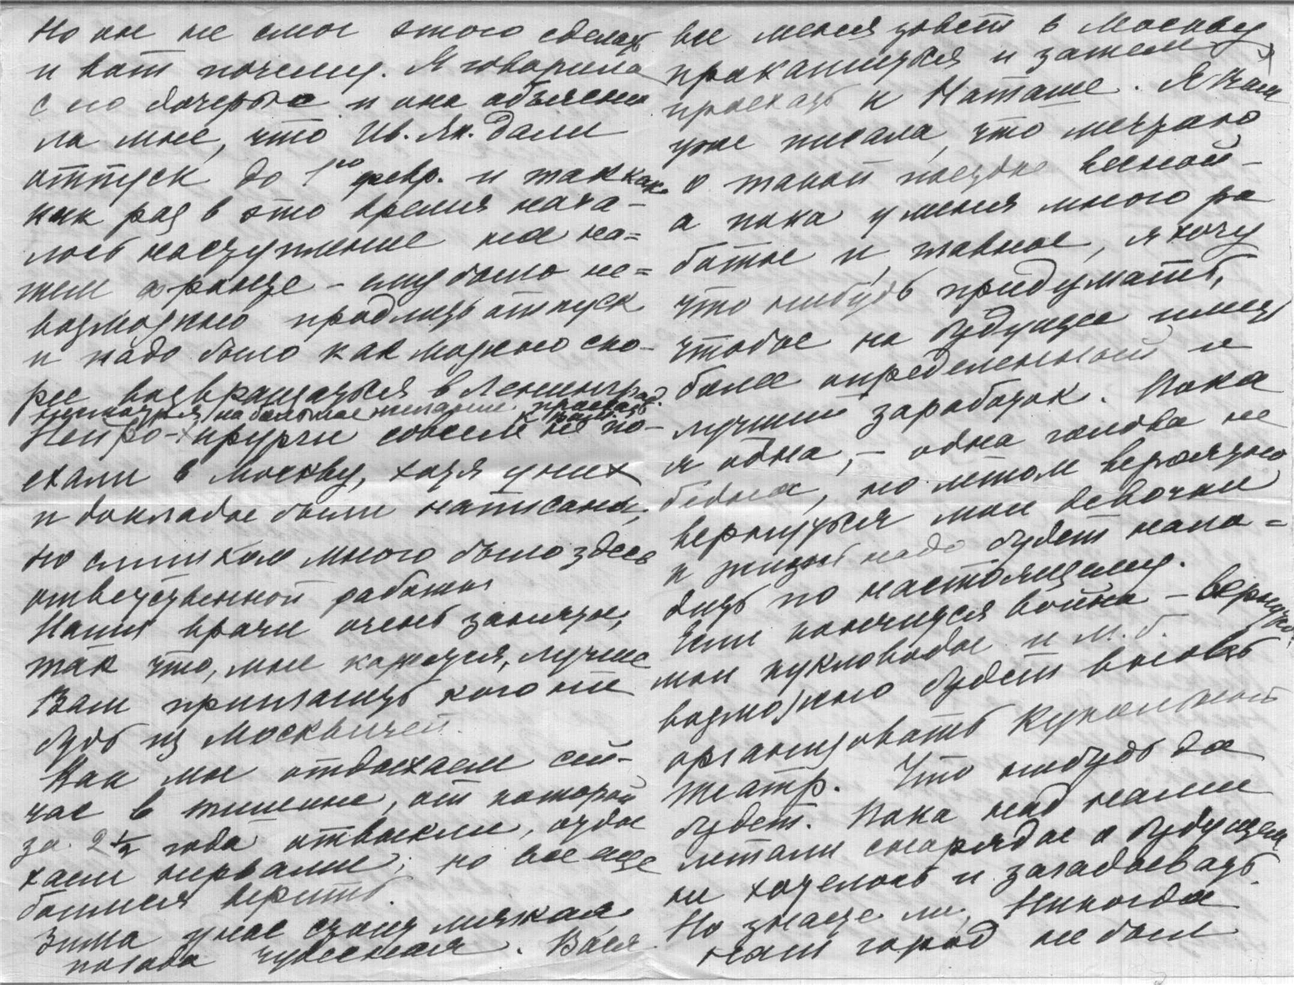 Но он не смог этого сделать
и вот почему. Я говорила
с его дочерью и она объясни
ла мне, что Ив. Як. дали
отпуск до 1го февр. и так как
как раз в это время нача-
лось наступление на на=
шем фронте - ему было не=
возможно продлить отпуск
и надо было как можно ско-
рее возвращаться в Ленинград.
несмотря на большое желание проехать
Нейро-хирурги совсем не по-
ехали в Москву, хотя у них
и доклады были написаны,
но слишком много было здесь
ответственной работы
Наши врачи очень заняты,
так что, мне кажется, лучше
Вам пригласить кого ни
будь из Москвичей.
Как мы отдыхаем сей-
час в тишине, от которой
за 2½ года отвыкли, отды
хаем нервами; но все еще
боимся верить.
Зима у нас стоит мягкая
погода чудесная. Вася
все меня зовет в Москву
прокатиться и затем
проехать к Наташе. Я Вам
уже писала, что мечтаю
о такой поездке весной -
а пока у меня много ра
боты и главное, я хочу
что нибудь придумать,
чтобы на будущее иметь
более определенный и
лучший заработок. Пока
я одна, - одна голова не
бедна, но летом вероятно
вернутся мои девочки
и жизнь надо будет нала=
дить по настоящему.
Если кончится война - вернутся
мои кукловоды и м. б.
возможно будет вновь
организовать Кукольный
театр. Что нибудь да
будет. Пока над нами
летали снаряды о будущем
не хотелось и загадывать.
Но знаете ли, Никогда
наш город не был